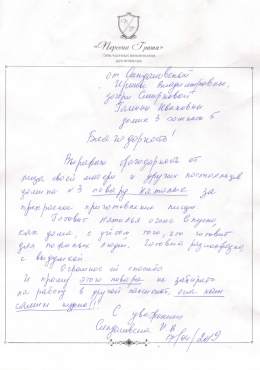 «Первая Гряда»
от Сандаловской
Ирины Владимировны,
дочери Смирновой
Галины Ивановны
домик 3 комната 5
Благодарность!
Выражаю благодарность от
лица своей мамы и других постояльцев
домика №3 повару Наталье за
прекрасное приготовление пищи.
Готовит Наталья очень вкусно,
как дома, с учётом того, что готовит
для пожилых людей. Готовит разнообразно,
с выдумкой.
Огромное ей спасибо
И прошу этого повара не забирать
на работу в другой пансионат, она нам
самим нужна!!!
С уважением
И.В.
17/04/2019